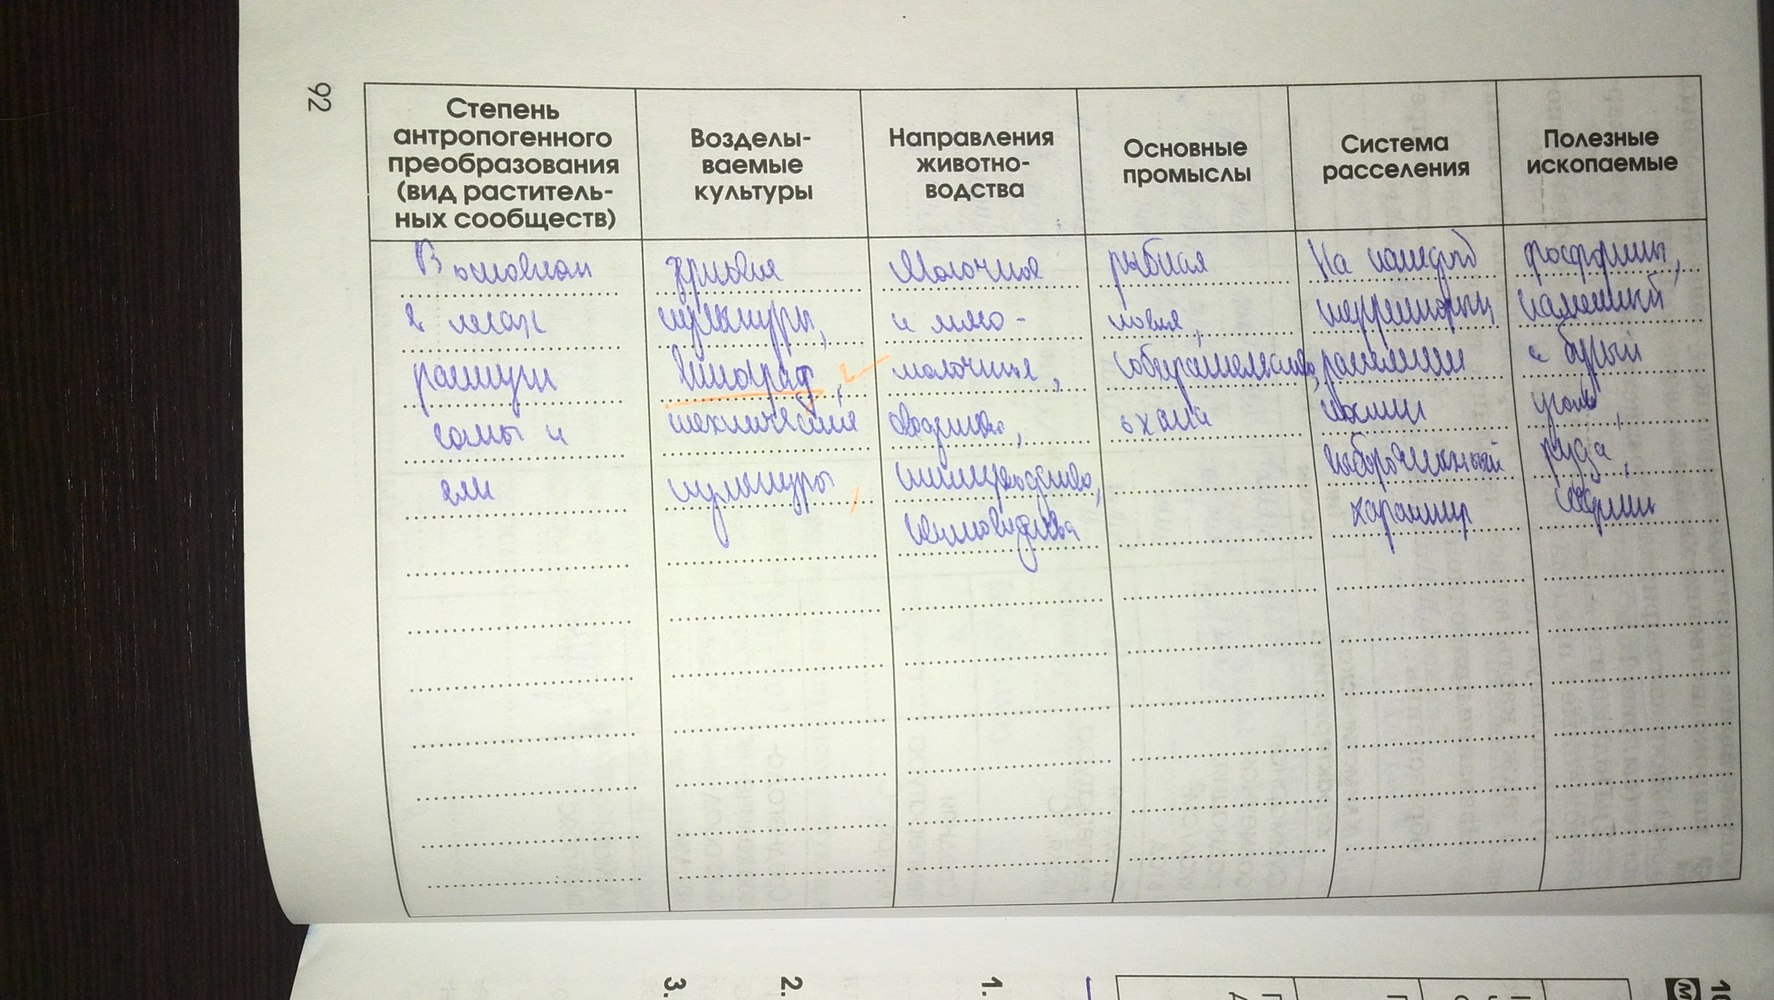 92
Степень
антропогенного
преобразования
(вид раститель-
ных сообществ)
Возделы-
ваемые
культуры
Направления
животно-
водства
Основные
промыслы
Система
расселения
Полезные
ископаемые
В основном
в лесах
растущи
сосны и
ели
культуры,
Виноград,
технические
культуры
Молочное
и мясо-
молочное,
рыбная
ловля,
собирательство,
охота
На каждой
территории
расселение
характер
фосфориты,
каменный
и бурый
уголь,
руда,
1.
2.
3.